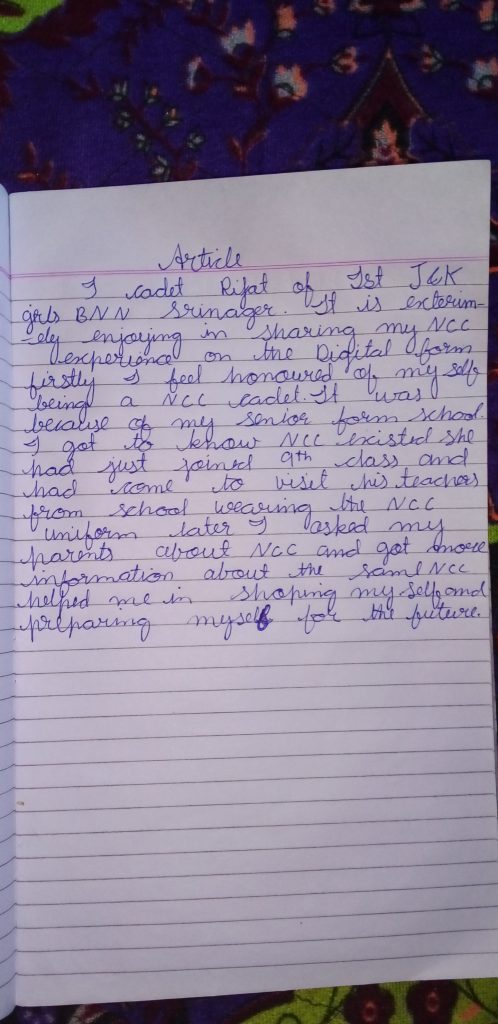 Article
I cadet Rifat of Ist J&K
girls BNN Srinager. It is exterim-
-ely enjoying in sharing my NCC
experience on the Digital form
firstly I feel honoured of my self
being a NCC cadet. It was
because of my senior form school.
I got to know NCC existed she
had just joined 9th class and
had come to visit his teachers
from school wearing the NCC
uniform later I asked my
parents about NCC and got more
information about the same NCC
helped me in shaping my self and
preparing myself for the future.